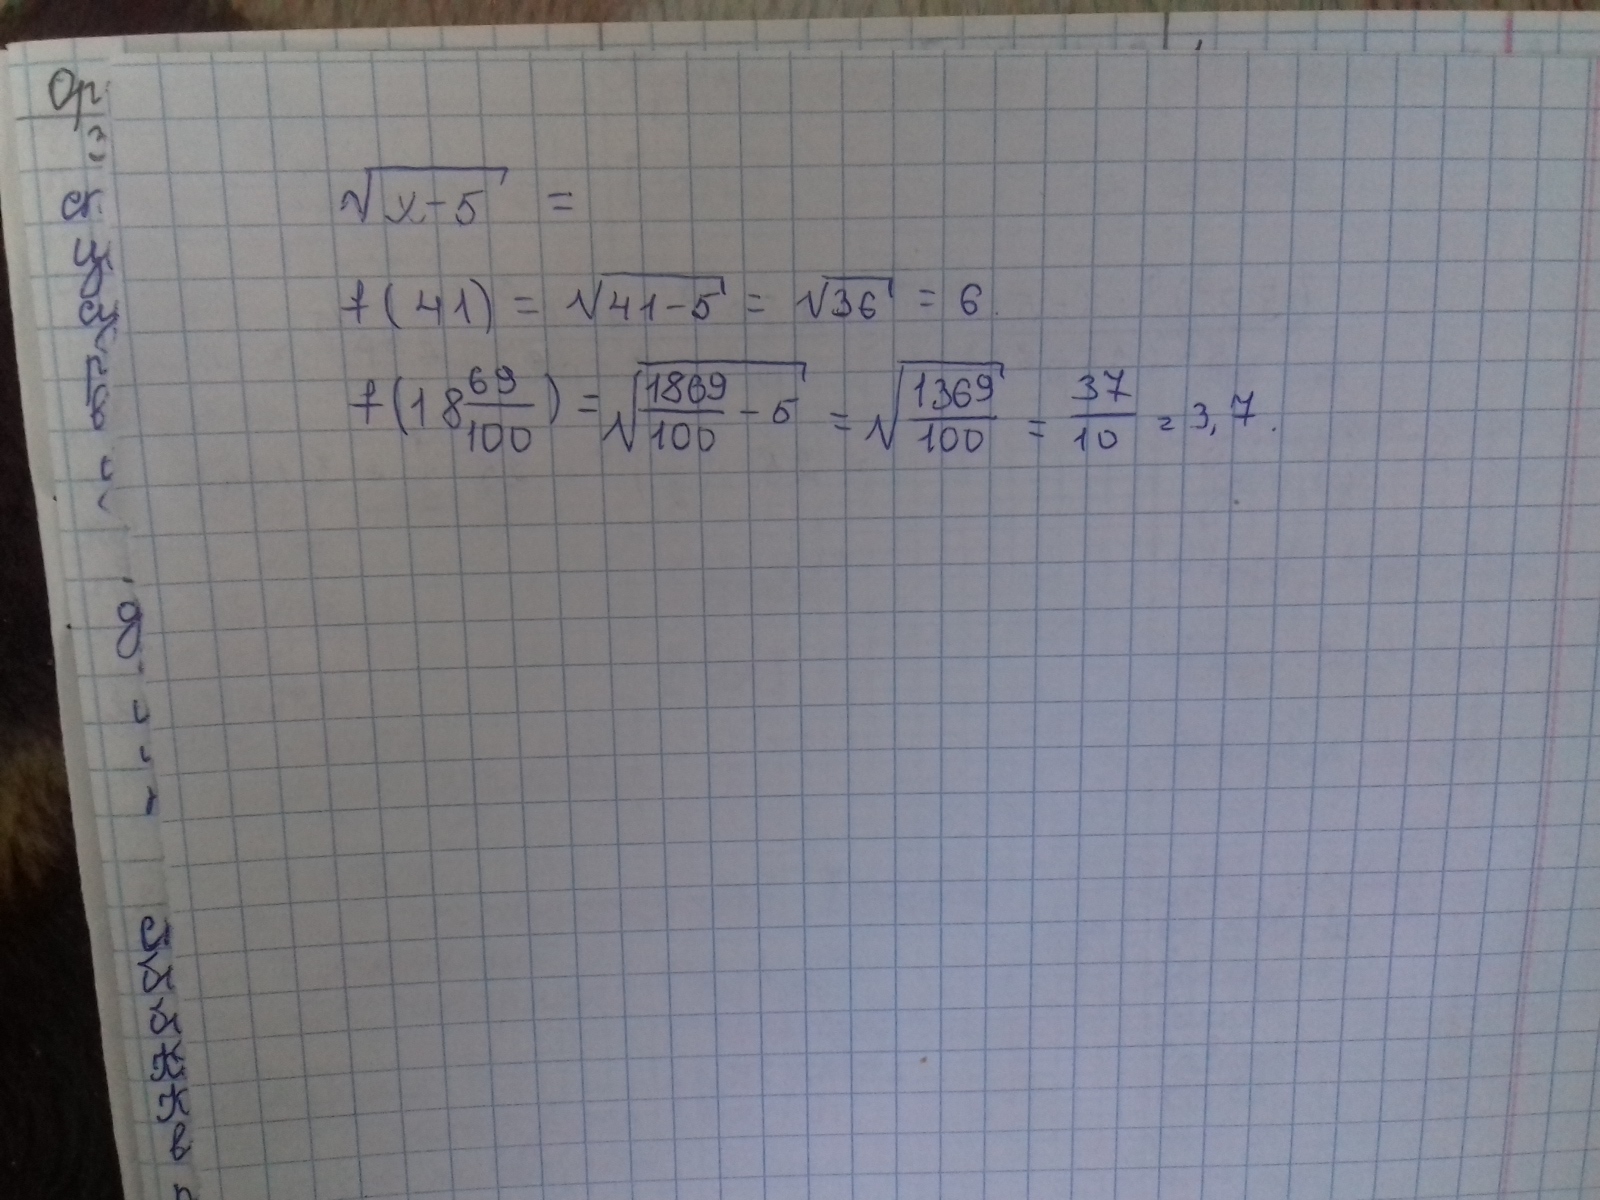 Ор
√(x-5) =
f(41) = √(41-5) = √36 = 6.
f(18 69/100) = √(1869/100 - 5) = √(1369/100) = 37/10 = 3,7.